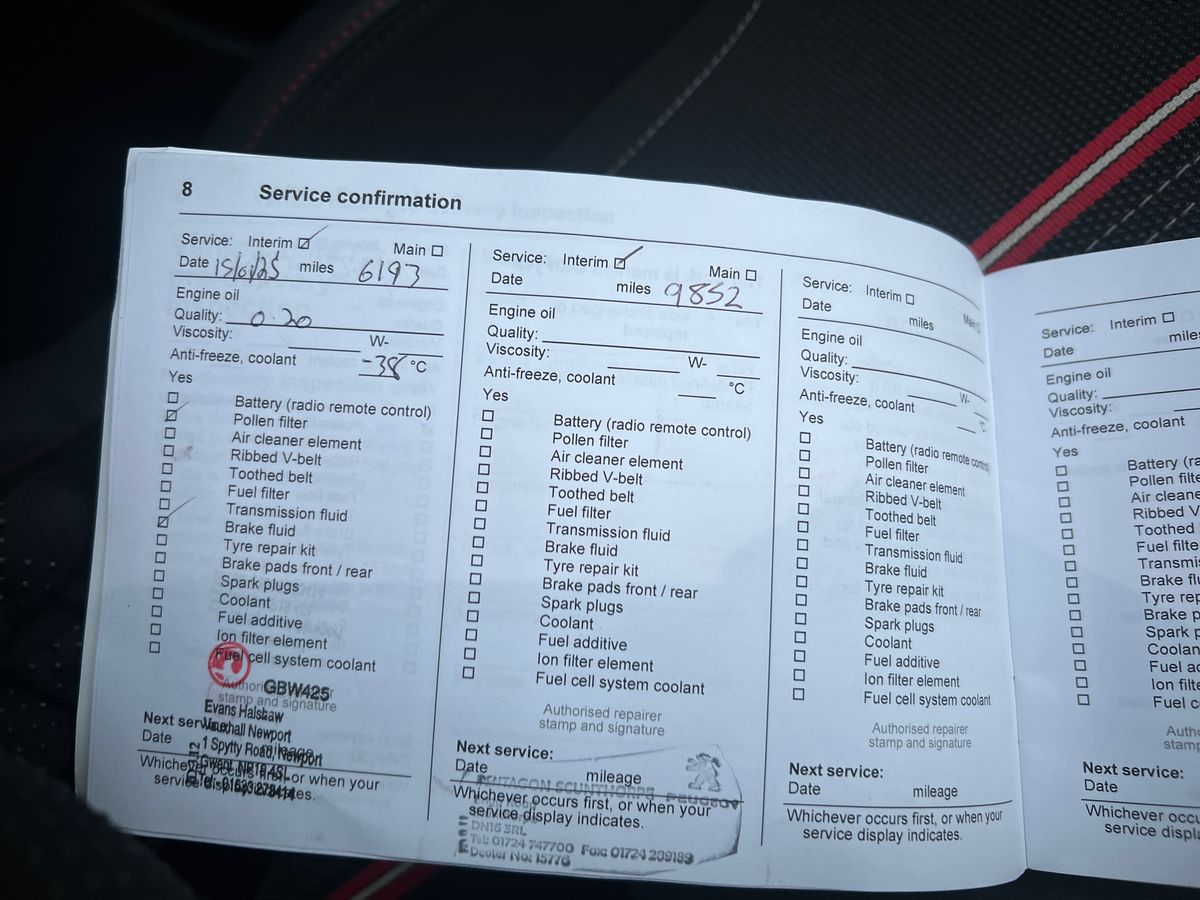 8 Service confirmation
Service: Interim Main
Date 15/6/25 miles 6193
Engine oil
Quality: 0.20
Viscosity: W-
Anti-freeze, coolant -38 °C
Yes
Battery (radio remote control)
Pollen filter
Air cleaner element
Ribbed V-belt
Toothed belt
Fuel filter
Transmission fluid
Brake fluid
Tyre repair kit
Brake pads front / rear
Spark plugs
Coolant
Fuel additive
Ion filter element
Fuel cell system coolant
Authorised repairer
stamp and signature
GBW425
Evans Halshaw
Vauxhall Newport
1 Spytty Road, Newport
Gwent, NP19 4SL
Tel: 01633 278414
Next service:
Date mileage
Whichever occurs first, or when your
service display indicates.
Service: Interim Main
Date miles 9852
Engine oil
Quality:
Viscosity: W-
Anti-freeze, coolant °C
Yes
Battery (radio remote control)
Pollen filter
Air cleaner element
Ribbed V-belt
Toothed belt
Fuel filter
Transmission fluid
Brake fluid
Tyre repair kit
Brake pads front / rear
Spark plugs
Coolant
Fuel additive
Ion filter element
Fuel cell system coolant
Authorised repairer
stamp and signature
Next service:
Date mileage
Whichever occurs first, or when your
service display indicates.
PENTAGON SCUNTHORPE PEUGEOT
DN16 3RL
Tel: 01724 747700 Fax: 01724 289189
Dealer No: 15776
Service: Interim Main
Date miles
Engine oil
Quality:
Viscosity: W-
Anti-freeze, coolant °C
Yes
Battery (radio remote control)
Pollen filter
Air cleaner element
Ribbed V-belt
Toothed belt
Fuel filter
Transmission fluid
Brake fluid
Tyre repair kit
Brake pads front / rear
Spark plugs
Coolant
Fuel additive
Ion filter element
Fuel cell system coolant
Authorised repairer
stamp and signature
Next service:
Date mileage
Whichever occurs first, or when your
service display indicates.
Service: Interim
Date miles
Engine oil
Quality:
Viscosity:
Anti-freeze, coolant
Yes
Battery (ra
Pollen filte
Air clean
Ribbed V
Toothed
Fuel filte
Transmis
Brake flu
Tyre rep
Brake p
Spark p
Coolan
Fuel ad
Ion filte
Fuel c
Auth
stamp
Next service:
Date
Whichever occu
service displa